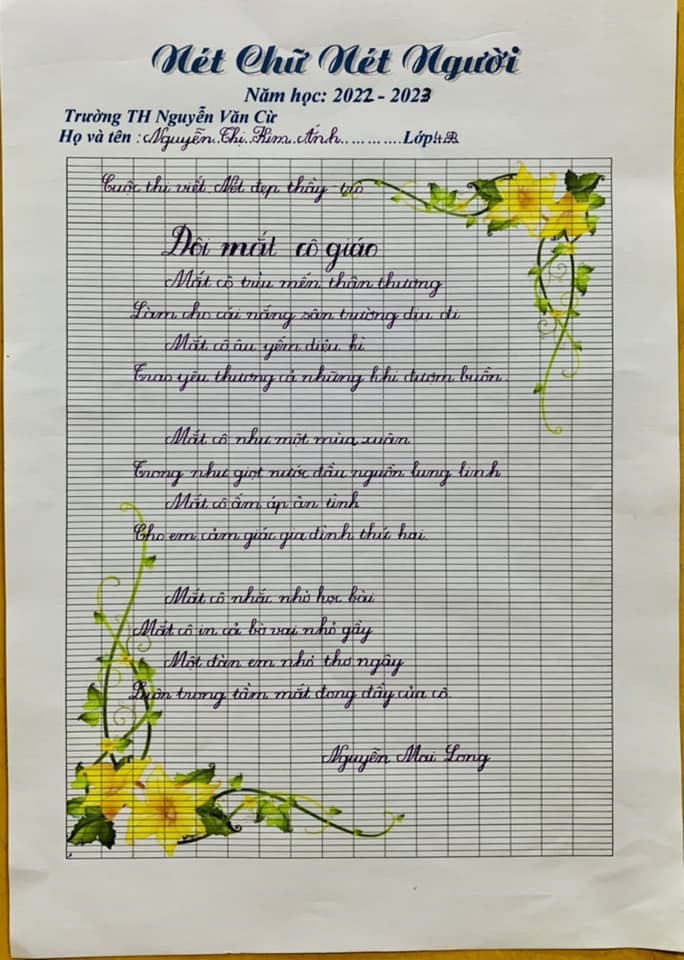 Nét Chữ Nét Người
Năm học: 2022 - 2023
Trường TH Nguyễn Văn Cừ
Họ và tên : Nguyễn Thị Kim Ánh.............Lớp 4B
Cuộc thi viết Nét đẹp thầy - trò
Đôi mắt cô giáo
Mắt cô trìu mến thân thương
Làm cho cái nắng sân trường dịu đi
Mắt cô âu yếm diệu kì
Trao yêu thương cả những khi đượm buồn.
Mắt cô như một mùa xuân
Trong như giọt nước đầu nguồn lung linh
Mắt cô ấm áp ân tình
Cho em cảm giác gia đình thứ hai.
Mắt cô nhắc nhở học bài
Mắt cô in cả bờ vai nhỏ gầy
Một đàn em nhỏ thơ ngây
Luôn trong tầm mắt đong đầy của cô.
Nguyễn Mai Long